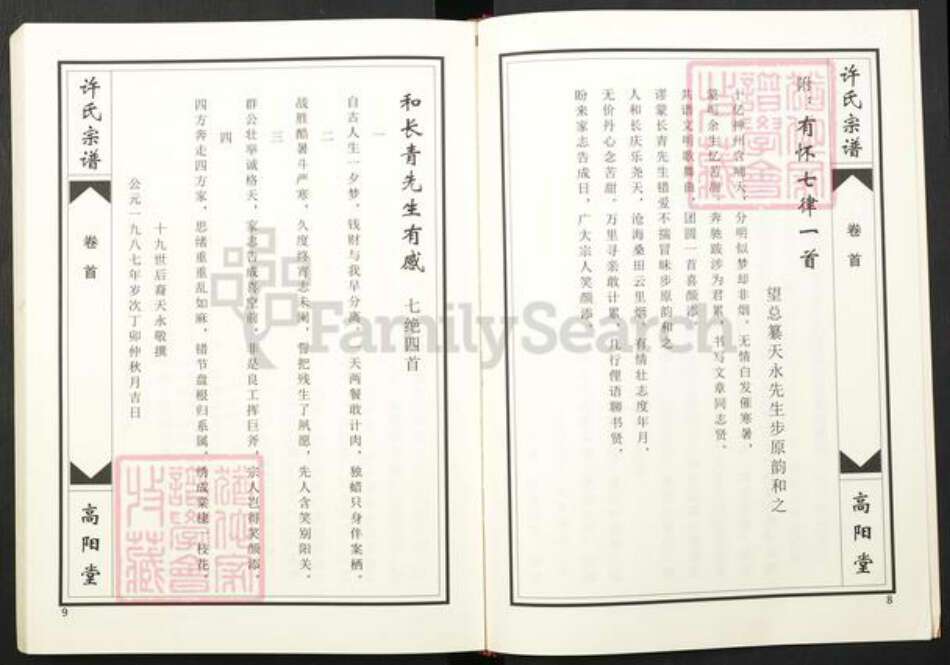 许氏宗谱
卷首
高阳堂
8
附：有怀七律一首
望总纂天永先生步原韵和之
十亿神州
天，分明似梦却非烟，无情白发催寒暑，
余生忆苦甜。奔驰跋涉为君累，书写文章同志贤。
共谱文明歌舞曲，团圆一首喜颜添。
谬蒙长青先生错爱不揣冒昧步原韵和之
人和长庆乐尧天，沧海桑田云里烟，有情壮志度年月，
无价丹心念苦甜。万里寻亲敢计累，几行俚语聊书贤。
盼来家志告成日，广大宗人笑颜添。
和长青先生有感 七绝四首
一
自古人生一夕梦，钱财与我早分离，
天两餐敢计肉，独蜡只身伴案栖。
二
战胜酷暑斗严寒，久度终宵志未阑，誓把残生了夙愿，先人含笑别阳关。
三
群公壮举诚格天，家志告成喜空前，
是良工挥巨斧，宗人岂得笑颜添。
四
四方奔走四方家，思绪重重乱如麻，错节盘根归系属，绣成棠棣一枝花。
十九世后裔天永敬撰
公元一九八七年岁次丁卯仲秋月吉日
许氏宗谱
卷首
高阳堂
9
FamilySearch